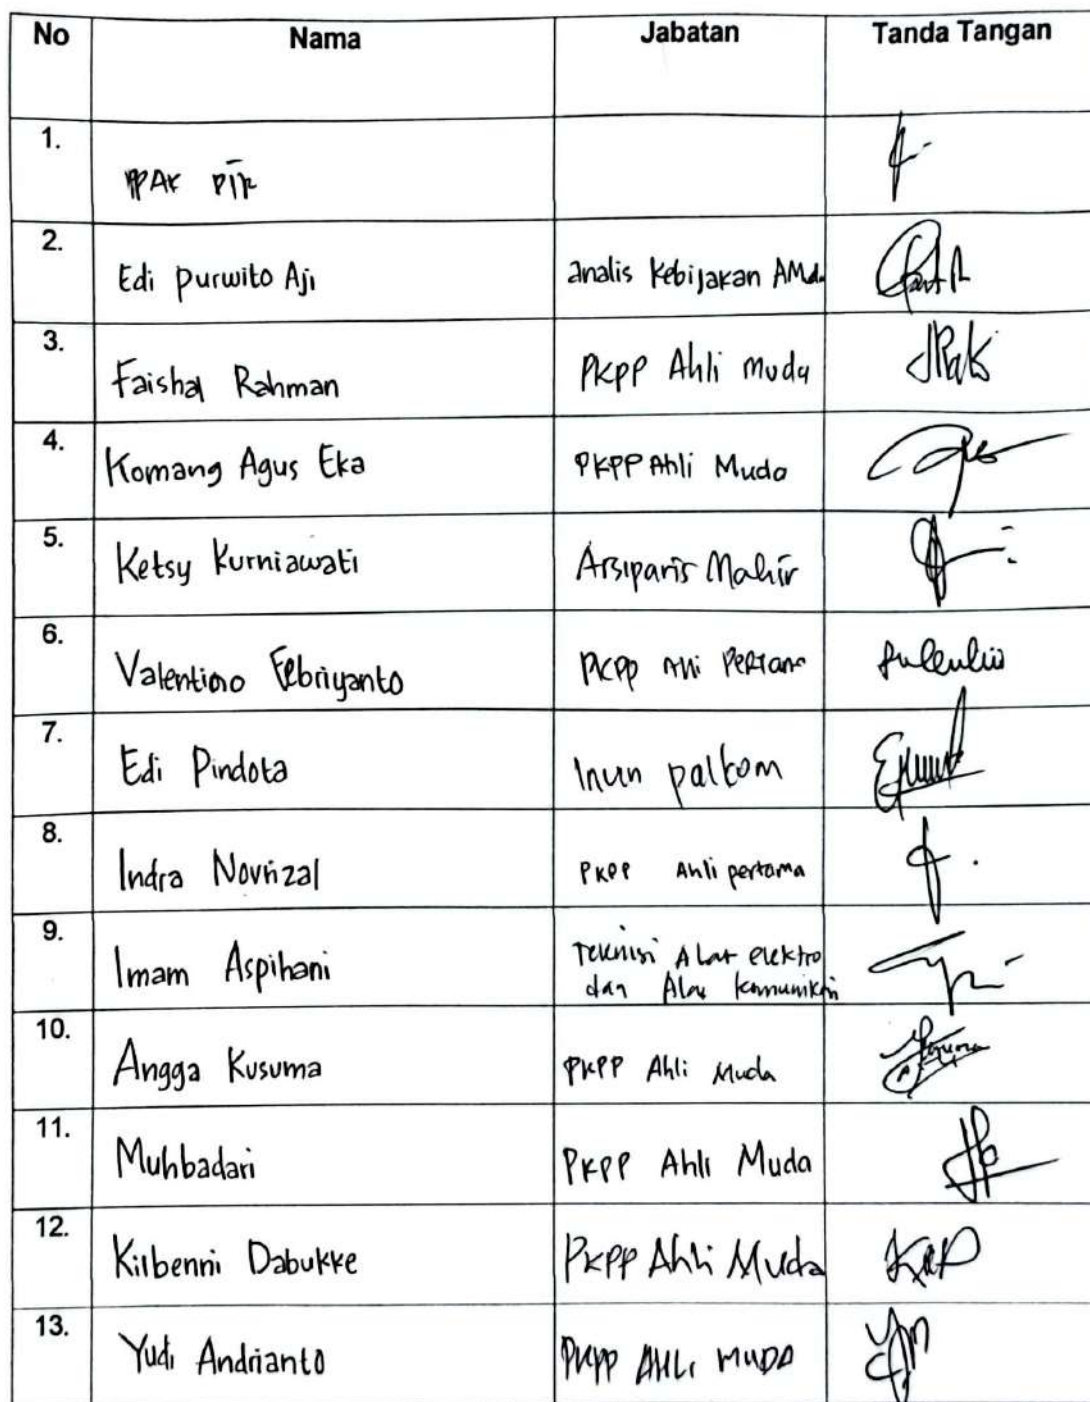 No Nama Jabatan Tanda Tangan
1.
2. Edi Purwito Aji analis Kebijakan AMda
3. Faishal Rahman PKPP Ahli muda
4. Komang Agus Eka PKPP Ahli Muda
5. Ketsy Kurniawati Arsiparis Mahir
6. Valentino Febriyanto PKPP Ahli Pertama
7. Edi Pindota palkom
8. Indra Novrizal PKPP Ahli pertama
9. Imam Aspihani Teknisi Alat elektro
dan Alat komunikasi
10. Angga Kusuma PKPP Ahli Muda
11. Muhbadari PKPP Ahli Muda
12. Kilbenni Dabukke PKPP Ahli Muda
13. Yudi Andrianto PKPP AHLI MUDA